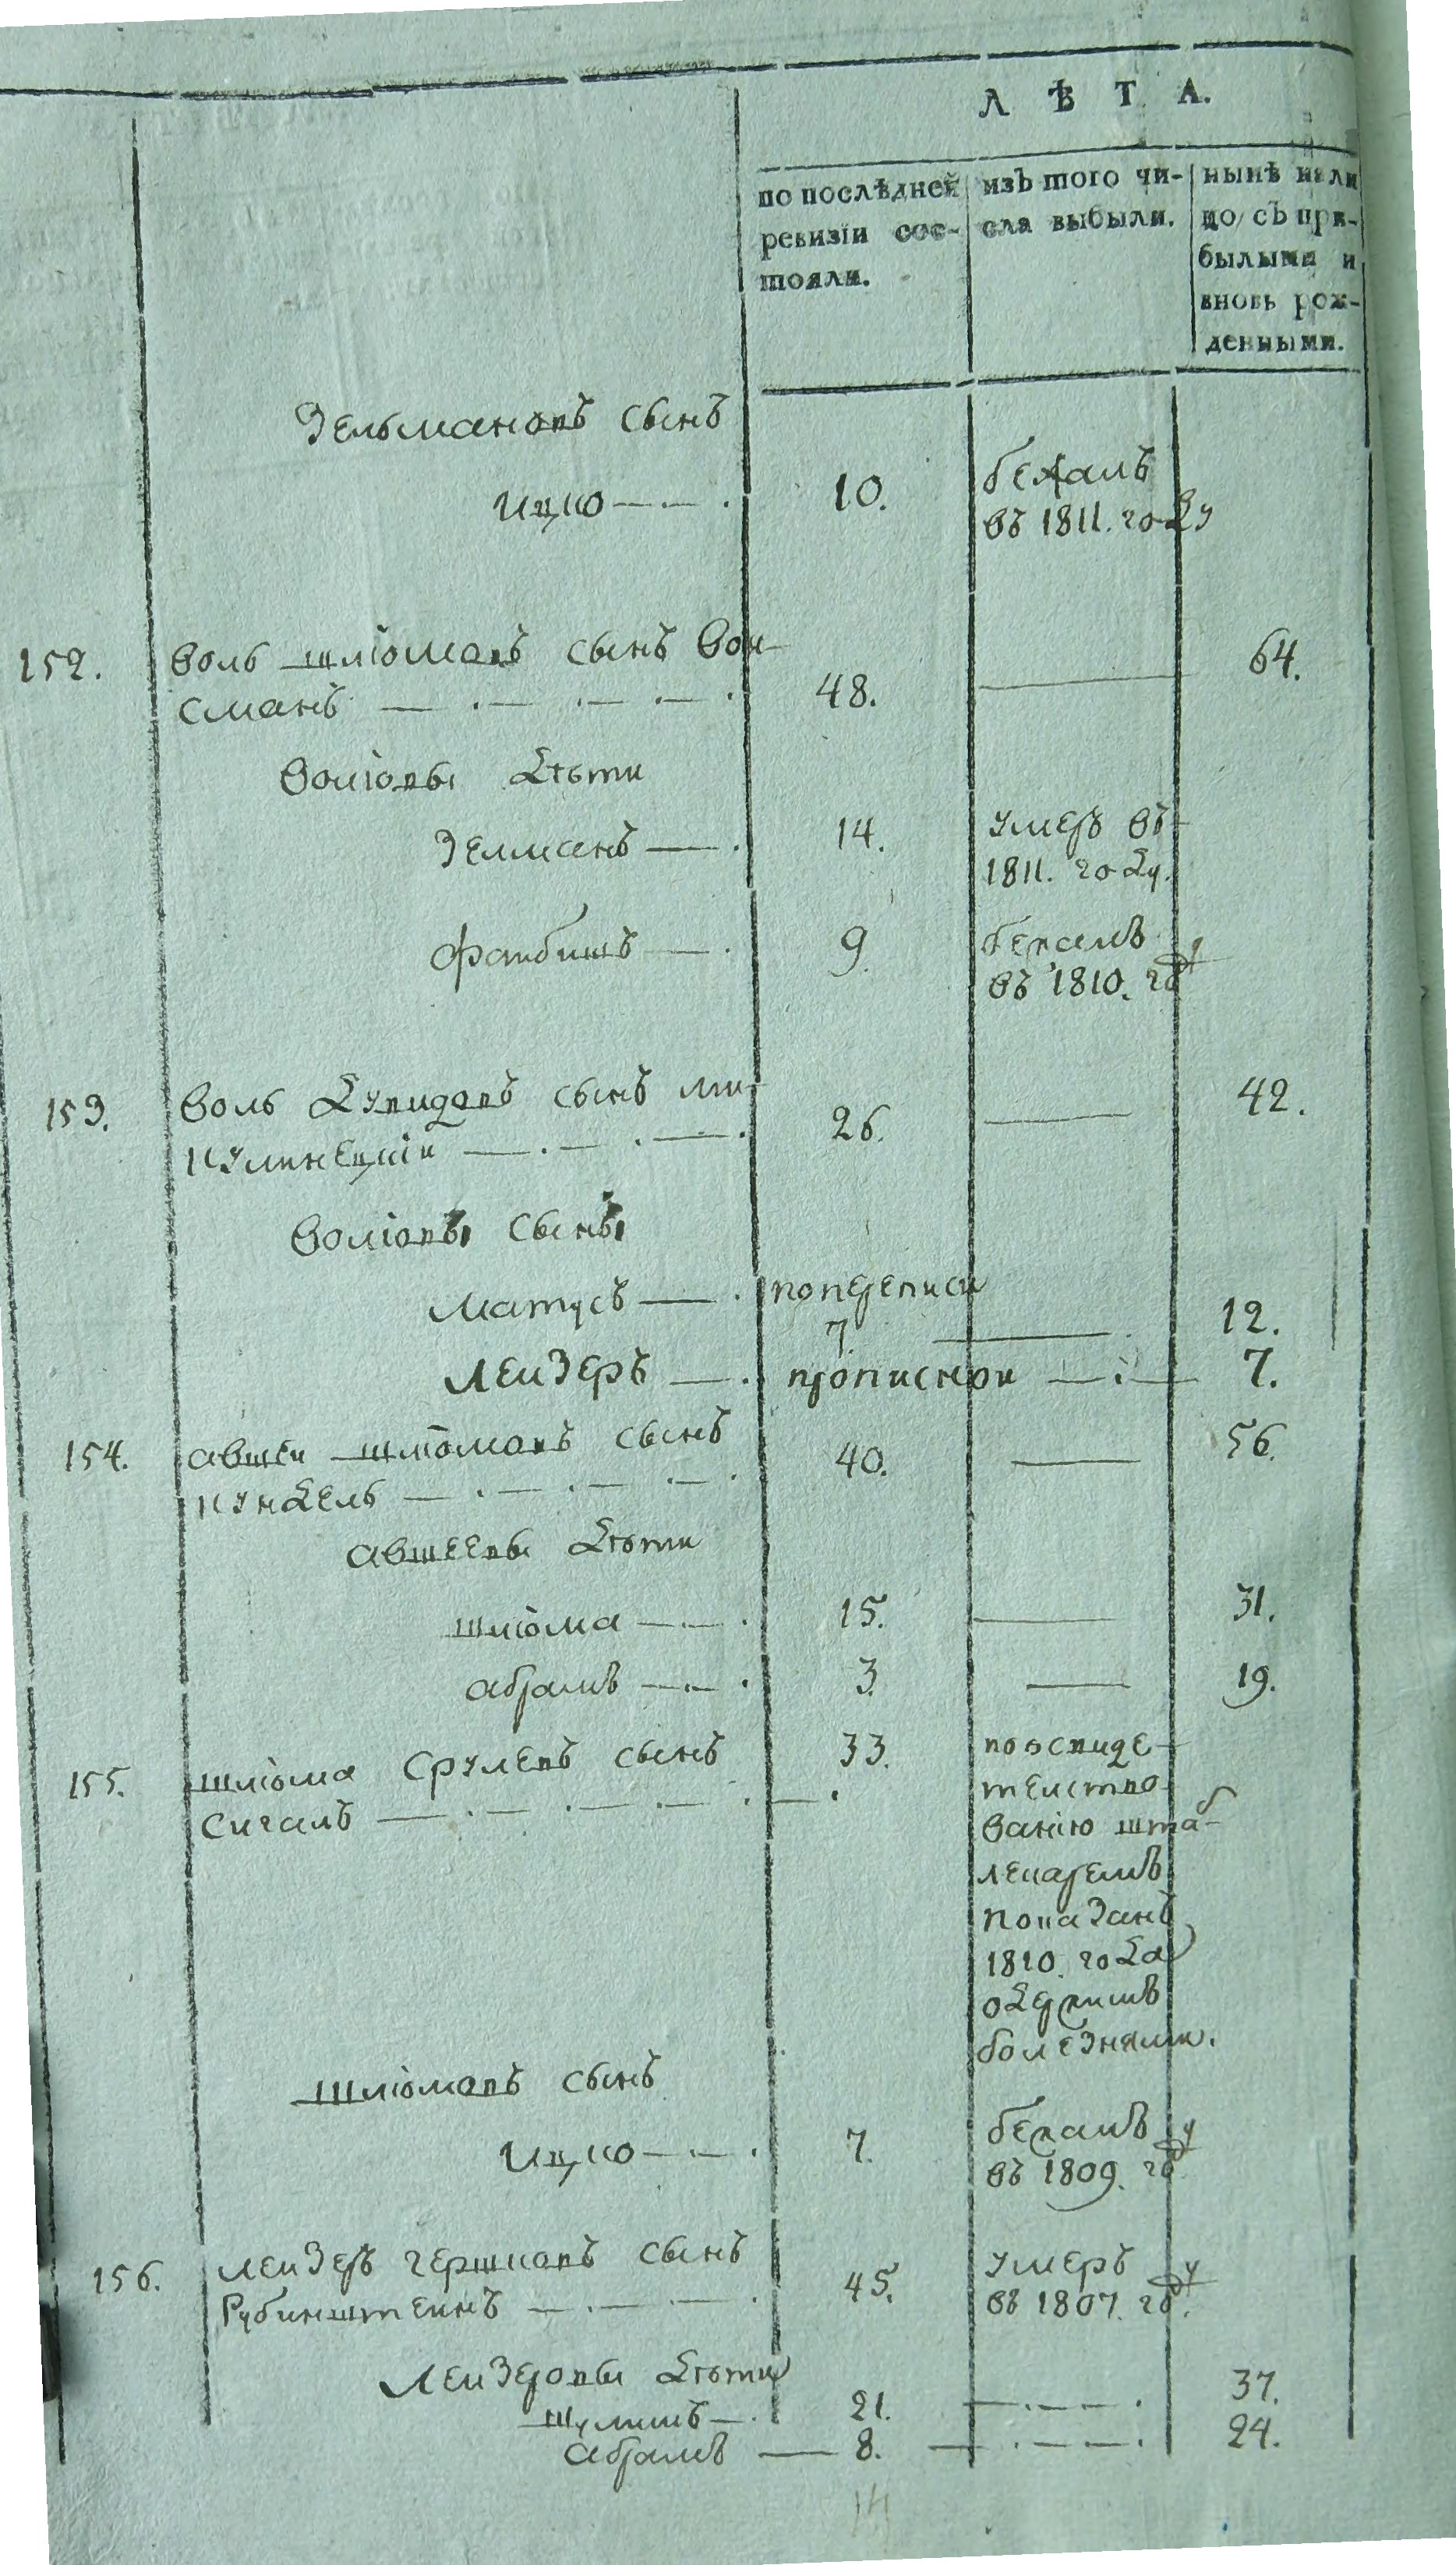 Л Ѣ Т А.
по послѣдней ревизіи сос-тояли.
изъ того чи-сла выбыли.
нынѣ нали цо съ при-былыми и вновь рож-денными.
Зельмановъ сынъ
Ицко — — . 10. бежалъ
въ 1811. году
152. Воль Шліомовъ сынъ Вои- 64.
сманъ — . — . — . — . 48. ———
Воліовы дѣти
Зелманъ — . 14. умеръ въ
1811. году.
Фаибишъ — . 9. бежалъ
въ 1810. году
153. Воль Дувидовъ сынъ Ми- 42.
кулинецкіи — . — . — . 26. ———
Воліовы сыны
Матусъ — . по переписи
7. ——— 12.
Леизеръ — . прописнои — . — 7.
154. Авшеи Шліомовъ сынъ 56.
Кундель — . — . — . 40. ———
Авшеевы дѣти
Шліома — . 15. ——— 31.
Абрамъ — . 3. ——— 19.
155. Шліома Срулевъ сынъ 33. по освиде-
Сигалъ — . — . — . — . телство-
ванію штаб-
лекаремъ
показанъ
1810. года
одержимъ
болезнями.
Шліомовъ сынъ
Ицко — — . 7. бежалъ
въ 1809. году
156. Леизеръ Гершковъ сынъ умеръ
Рубинштеинъ — . — . — . 45. въ 1807. году.
Леизеровы дѣти
Шулимъ — . 21. — . — . — . 37.
Абрамъ — 8. — . — . — . 24.
14